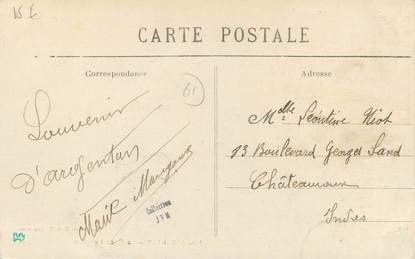 15 E
CARTE POSTALE
Correspondance
Adresse
61
Souvenir
D'argentan
Marie
Collection
JPM
Melle Léontine Niot
13 Boulevard Georges Sand
Châteauroux
Indre